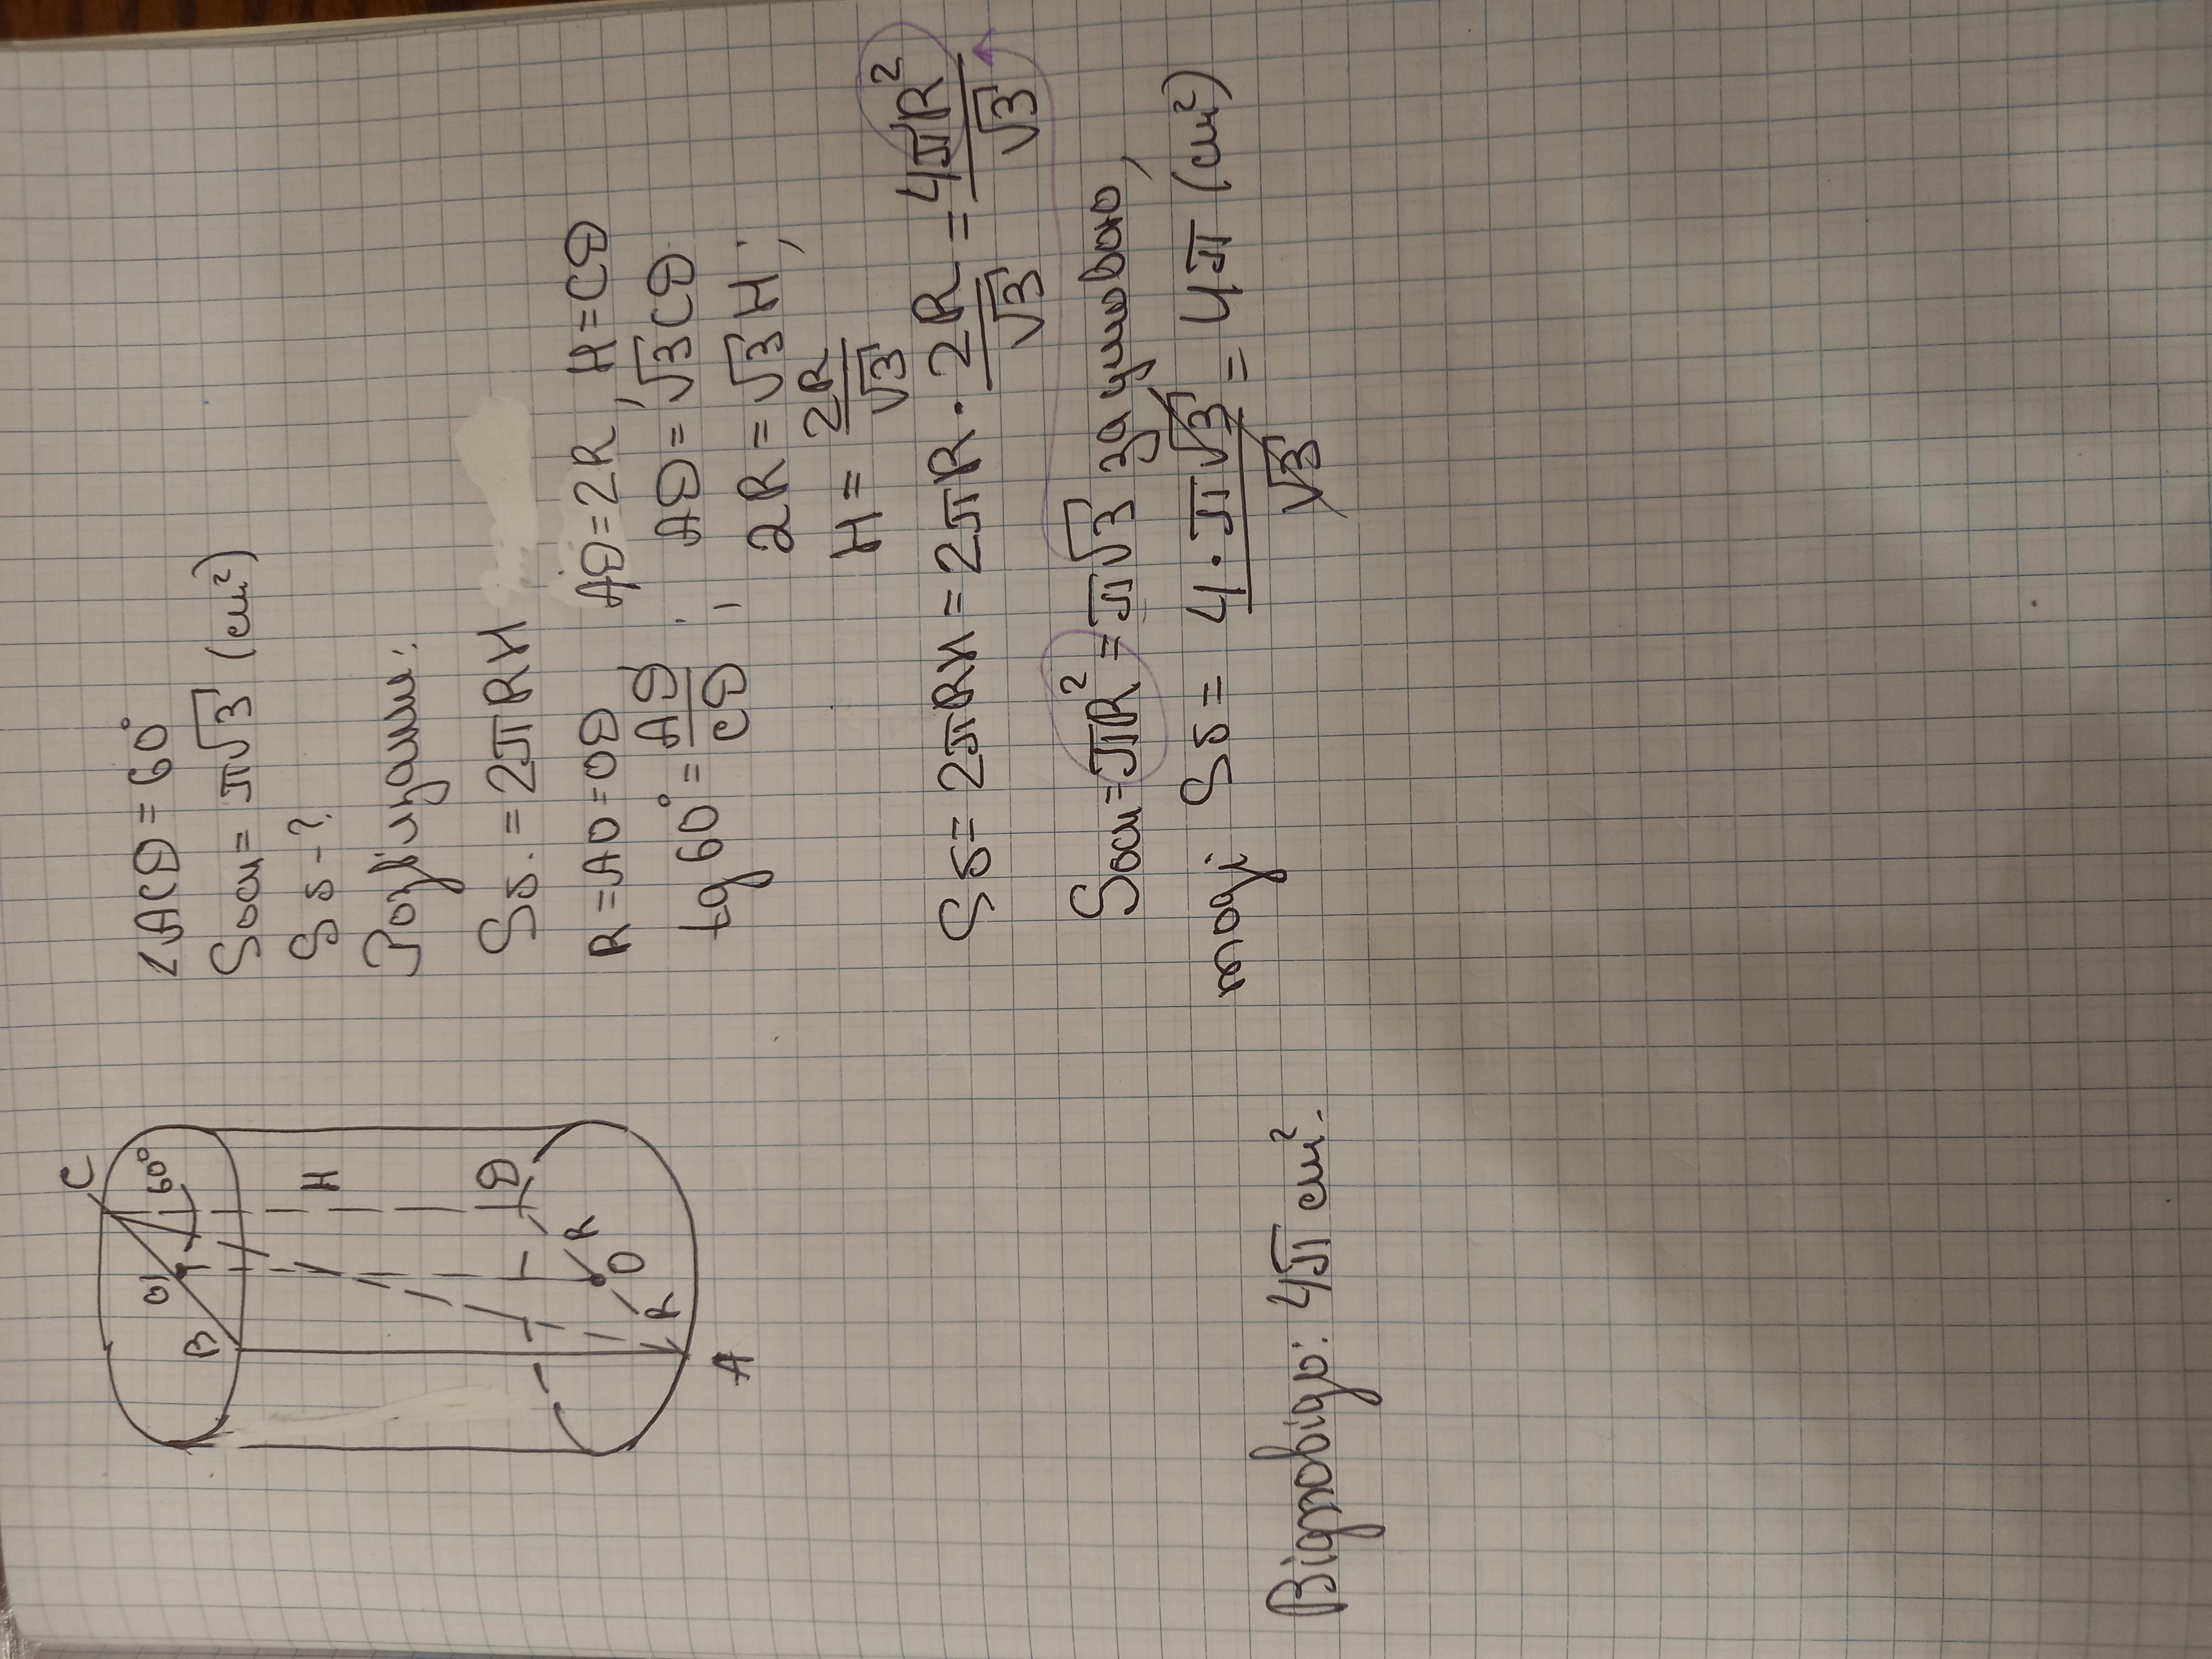 ∠ACD = 60°
Sосн = π√3 (см²)
Sб - ?
Розв'язання:
Sб. = 2πRH
R = AO = OD AD = 2R, H = CD
tg 60° = AD/CD; AD = √3 CD
2R = √3 H;
H = 2R/√3
Sб = 2πRH = 2πR · 2R/√3 = 4πR²/√3
Sосн = πR² = π√3 за умовою,
тоді Sб = 4·π√3/√3 = 4π (см²)
Відповідь: 4π см².
C
60°
O₁
B
H
D
R
O
R
A